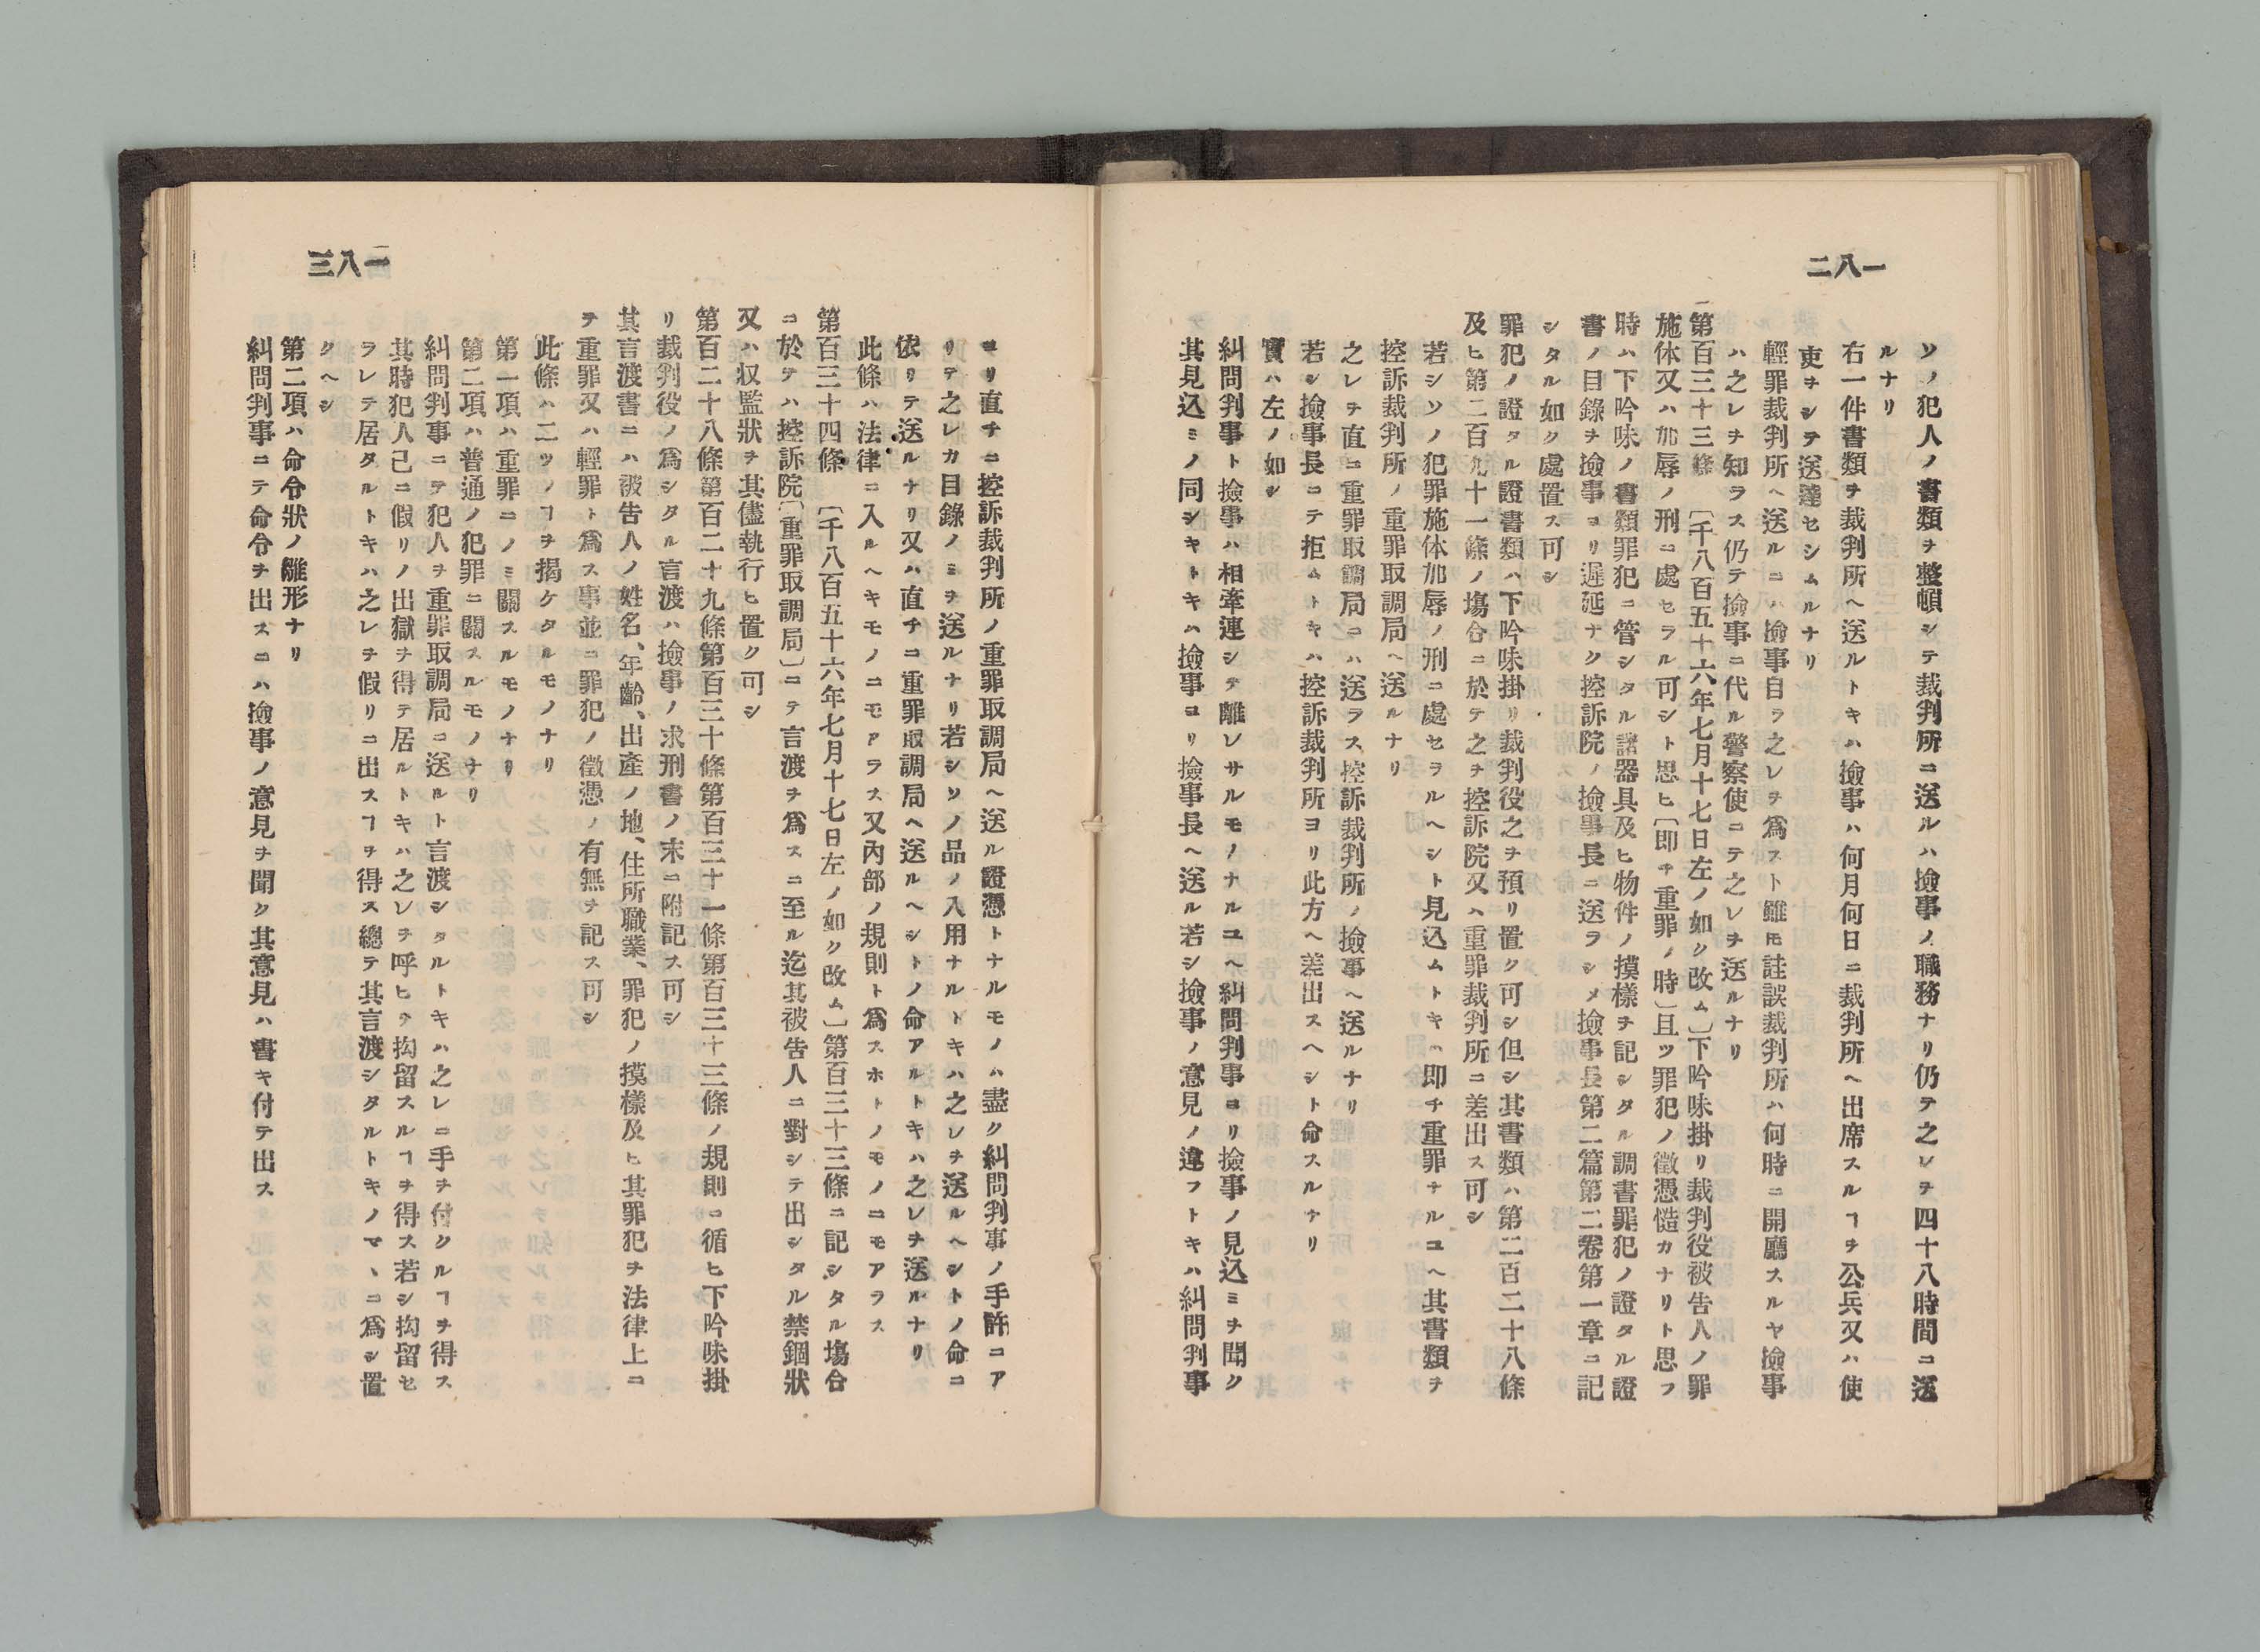 一八二
ソノ犯人ノ書類ヲ整頓シテ裁判所ニ送ルハ撿事ノ職務ナリ仍テ之レヲ四十八時間ニ送
ルナリ
右一件書類ヲ裁判所ヘ送ルトキハ撿事ハ何月何日ニ裁判所ヘ出席スルヿヲ公兵又ハ使
吏ヲシテ送達セシムルナリ
輕罪裁判所ヘ送ルニハ撿事自ラ之レヲ爲スト雖𪜈註誤裁判所ハ何時ニ開廳スルヤ撿事
ハ之レヲ知ラス仍テ撿事ニ代ル警察使ニテ之レヲ送ルナリ
第百三十三條　〔千八百五十六年七月十七日左ノ如ク改ム〕下吟味掛リ裁判役被告人ノ罪
施体又ハ加辱ノ刑ニ處セラル可シト思ヒ〔即チ重罪ノ時〕且ツ罪犯ノ徵憑慥カナリト思フ
時ハ下吟味ノ書類罪犯ニ管シタル諸器具及ヒ物件ノ摸樣ヲ記シタル調書罪犯ノ證タル證
書ノ目錄ヲ撿事ヨリ遲延ナク控訴院ノ撿事長ニ送ラシメ撿事長第二篇第二卷第一章ニ記
シタル如ク處置ス可シ
罪犯ノ證タル證書類ハ下吟味掛リ裁判役之ヲ預リ置ク可シ但シ其書類ハ第二百二十八條
及ヒ第二百九十一條ノ塲合ニ於テ之ヲ控訴院又ハ重罪裁判所ニ差出ス可シ
若シソノ犯罪施体加辱ノ刑ニ處セラルヘシト見込ムトキハ即チ重罪ナルユヘ其書類ヲ
控訴裁判所ノ重罪取調局ヘ送ルナリ
之レヲ直ニ重罪取調局ニハ送ラス控訴裁判所ノ撿事ヘ送ルナリ
若シ撿事長ニテ拒ムトキハ控訴裁判所ヨリ此方ヘ差出スヘシト命スルナリ
實ハ左ノ如シ
糾問判事ト撿事ハ相牽連シテ離レサルモノナルユヘ糾問判事ヨリ撿事ノ見込ミヲ聞ク
其見込ミノ同シキトキハ撿事ヨリ撿事長ヘ送ル若シ撿事ノ意見ノ違フトキハ糾問判事
一八三
ヨリ直チニ控訴裁判所ノ重罪取調局ヘ送ル證憑トナルモノハ盡ク糾問判事ノ手許ニア
リテ之レカ目錄ノミヲ送ルナリ若シソノ品ノ入用ナルトキハ之レヲ送ルヘシトノ命ニ
依リテ送ルナリ又ハ直チニ重罪取調局ヘ送ルヘシトノ命アルトキハ之レヲ送ルナリ
此條ハ法律ニ入ルヘキモノニモアラス又內部ノ規則ト爲スホトノモノニモアラス
第百三十四條　〔千八百五十六年七月十七日左ノ如ク改ム〕第百三十三條ニ記シタル塲合
ニ於テハ控訴院〔重罪取調局〕ニテ言渡ヲ爲スニ至ル迄其被告人ニ對シテ出シタル禁錮狀
又ハ収監狀ヲ其儘執行ヒ置ク可シ
第百二十八條第百二十九條第百三十條第百三十一條第百三十三條ノ規則ニ循ヒ下吟味掛
リ裁判役ノ爲シタル言渡ハ撿事ノ求刑書ノ末ニ附記ス可シ
其言渡書ニハ被告人ノ姓名、年齡、出產ノ地、住所職業、罪犯ノ摸樣及ヒ其罪犯ヲ法律上ニ
テ重罪又ハ輕罪ト爲ス事並ニ罪犯ノ徵憑ノ有無ヲ記ス可シ
此條ハ二ツノヿヲ揭ケタルモノナリ
第一項ハ重罪ニノミ關スルモノナリ
第二項ハ普通ノ犯罪ニ關スルモノナリ
糾問判事ニテ犯人ヲ重罪取調局ニ送ルト言渡シタルトキハ之レニ手ヲ付クルヿヲ得ス
其時犯人己ニ假リノ出獄ヲ得テ居ルトキハ之レヲ呼ヒテ拘留スルヿヲ得ス若シ拘留セ
ラレテ居タルトキハ之レヲ假リニ出スヿヲ得ス總テ其言渡シタルトキノマヽニ爲シ置
クヘシ
第二項ハ命令狀ノ雛形ナリ
糾問判事ニテ命令ヲ出スニハ撿事ノ意見ヲ聞ク其意見ハ書キ付テ出ス